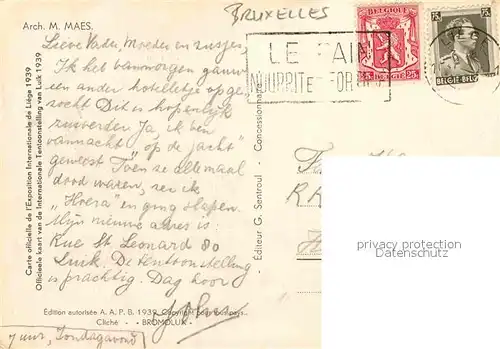 Arch. M. MAES.
BRUXELLES
BELGIQUE
25 BELGIE 25
75 75
BELGIE BELGIQUE
LE PAIN
NOURRIT et FORTIFIE
Carte officielle de l'Exposition Internationale de Liége 1939
Officieele kaart van de Internationale Tentoonstelling van Luik 1939
Lieve Vader, Moeder en zusjes,
Ik heb vanmorgen gauw
een ander hotelletje opge-
zocht Dit is hopenlijk
zuiverder Ja ik ben
vannacht "op de jacht"
geweest Toen ze allemaal
dood waren, zei ik
"Hoera" en ging slapen.
Mijn nieuwe adres is:
Rue St. Leonard 80
Luik. De tentoonstelling
is prachtig. Dag hoor
Éditeur G. Sentroul - Concessionnaire
privacy protection
Datenschutz
Édition autorisée A. A. P. B. 1939. Copyright
Cliché - BROMOLUX -
7 uur, Zondagavond